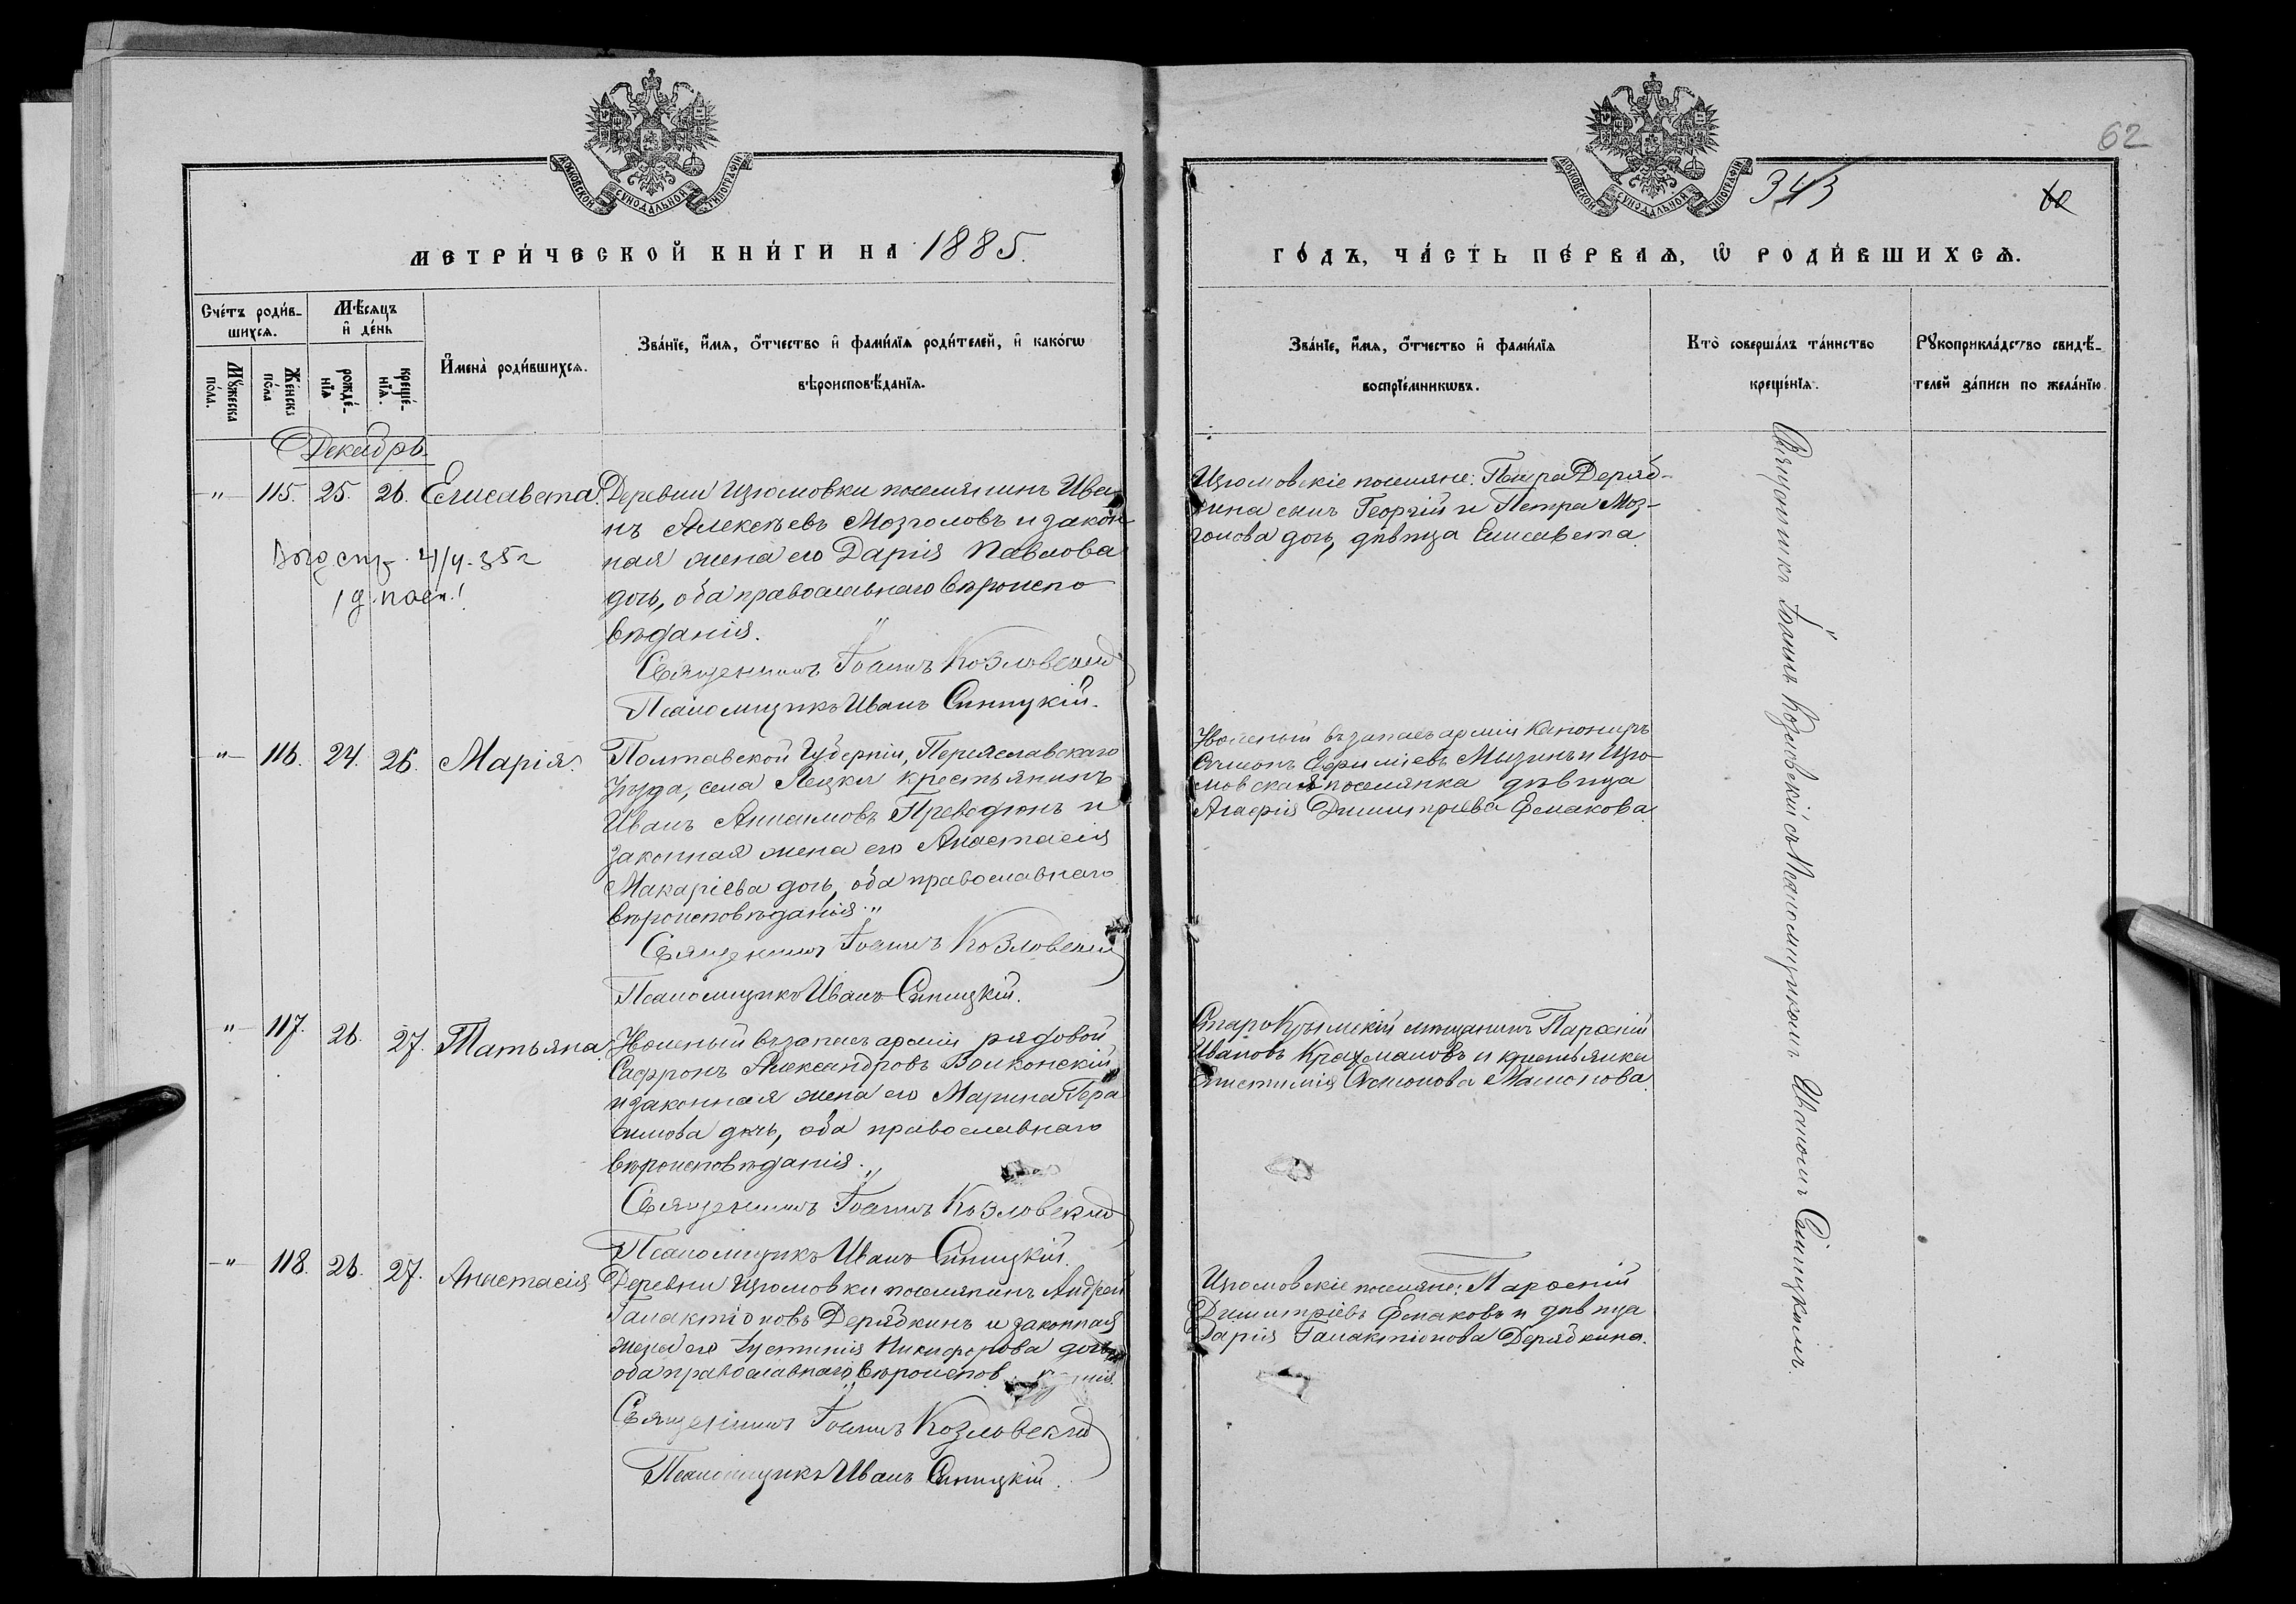 62
МОСКОВСКОЙ СѴНОДАЛЬНОЙ ТИПОГРАФІИ
МОСКОВСКОЙ СѴНОДАЛЬНОЙ ТИПОГРАФІИ
343
60
МЕТРИ́ЧЕСКОЙ КНИ́ГИ НА 1885.
ГО́ДЪ, ЧА́СТЬ ПЕ́РВАѦ, Ѡ РОДИ́ВШИХСѦ.
Сче́тъ роди́в-
шихсѧ.
Мꙋ́жеска
по́ла.
Же́нска
по́ла
Мѣ́сѧцъ
и҆ де́нь
рожде́-
нїѧ
креще́-
нїѧ.
И҆мена̀ роди́вшихсѧ.
Зва́нїе, и҆́мѧ, о҆́тчество и҆ фами́лїѧ роди́телей, и҆ како́гѡ
вѣроисповѣ́данїѧ.
Зва́нїе, и҆́мѧ, о҆́тчество и҆ фами́лїѧ
воспрїе́мникѡвъ.
Кто̀ соверша́лъ та́инство
креще́нїѧ.
Рꙋкоприкла́дство свидѣ́-
телей за́писи по жела́нїю
Декабрь
-"- 115. 25. 26. Елисавета.
Деревни Изюмовки поселянинъ Ива-
нъ Алексѣевъ Мозголовъ и закон
ная жена его Дарія Павлова
дочь, оба православнаго вѣроиспо
вѣданія."
Священникъ Іоаннъ Козловскій
Псаломщикъ Иванъ Синицкій.
Изюмовскіе поселяне: Петра Деряб-
кина сынъ Георгій и Петра Моз-
голова дочь, дѣвица Елисавета.
35г
-"- 116. 24. 26. Марія.
Полтавской Губерніи, Переяславскаго
Уѣзда, села Лецки крестьянинъ
Иванъ
законная жена его Анастасія
Макаріева дочь, оба православнаго
вѣроисповѣданія."
Священникъ Іоаннъ Козловскій
Псаломщикъ Иванъ Синицкій.
Уволеный въ запасъ арміи Канониръ
Ефиміевъ Мизинъ и Изю-
мовская поселянка дѣвица
Агафія Димитріева Ермакова.
-"- 117. 26. 27. Татьяна.
Уволеный въ запасъ арміи рядовой
Сафронъ Александровъ Волконскій
и законная жена его Марина Гера
симова дочь, оба православнаго
вѣроисповѣданія."
Священникъ Іоаннъ Козловскій
Псаломщикъ Иванъ Синицкій.
СтароКрымскій мѣщанинъ Парѳеній
Ивановъ Крахмаловъ и крестьянка
Епистимія Мамонова.
-"- 118. 26. 27. Анастасія
Деревни Изюмовки поселянинъ Андрей
Галактіоновъ Дерябкинъ и законная
жена его Іустинія Никифорова дочь,
оба православнаго вѣроисповѣданія.
Священникъ Іоаннъ Козловскій
Псаломщикъ Иванъ Синицкій.
Изюмовскіе поселяне: Парѳеній
Димитріевъ Ермаковъ и дѣвица
Дарія Галактіонова Дерябкина.
Священникъ Іоаннъ Козловскій съ Псаломщикомъ Иваномъ Синицкимъ.